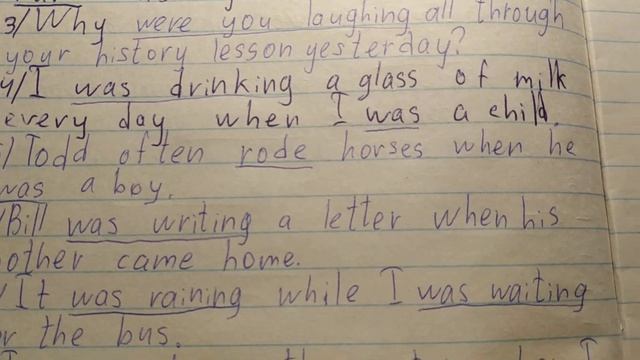 3/ Why were you laughing all through
your history lesson yesterday?
4/ I was drinking a glass of milk
every day when I was a child.
/ Todd often rode horses when he
was a boy.
/ Bill was writing a letter when his
other came home.
/ It was raining while I was waiting
or the bus.